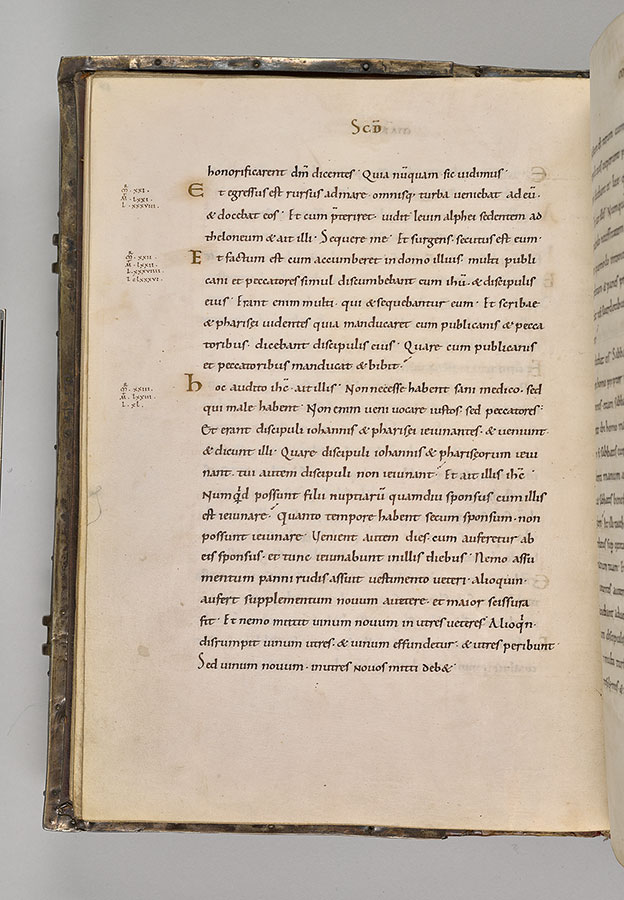 Scd̄
honorificarent dm̄ dicentes · Quia nūquam sic vidimus ·
Et egressus est rursus ad mare · omnisq; turba veniebat ad eū ·
& docebat eos · Et cum p̄teriret · vidit levin alphei sedentem ad
theloneum & ait illi · Sequere me · Et surgens · secutus est eum ·
Et factum est cum accumberet in domo illius · multi publi
cani et peccatores simul discumbebant cum ihū · & discipulis
eius · Erant enim multi · qui & sequebantur eum · Et scribae
& pharisei videntes quia manducaret cum publicanis & pecca
toribus · dicebant discipulis eius · Quare cum publicanis
et peccatoribus manducat & bibit ·
hoc audito ihc̄ · ait illis · Non necesse habent sani medico · sed
qui male habent · Non enim veni vocare iustos sed peccatores ·
Et erant discipuli iohannis & pharisei ieiunantes · & veniunt ·
& dicunt illi · Quare discipuli iohannis & phariseorum ieiu
nant · tui autem discipuli non ieiunant · Et ait illis ihc̄ ·
Numq̄d possunt filii nuptiarū quamdiu sponsus cum illis
est ieiunare · Quanto tempore habent secum sponsum · non
possunt ieiunare · Venient autem dies · cum auferetur ab
eis sponsus · et tunc ieiunabunt in illis diebus · Nemo assu
mentum panni rudis assuit vestimento veteri · Alioquin ·
aufert supplementum novum a vetere · et maior scissura
fit · Et nemo mittit vinum novum in utres veteres · Alioq̄n ·
disrumpit vinum utres · & vinum effundetur · & utres peribunt ·
Sed vinum novum · in utres novos mitti deb& ·
m̄ · xxi ·
m̄ · lxxi ·
l · xxxviii ·
m̄ · xxii ·
m̄ · lxxii ·
l · xxxviiii ·
l · clxxxvi ·
m̄ · xxiii ·
m̄ · lxxiii ·
l · xl ·